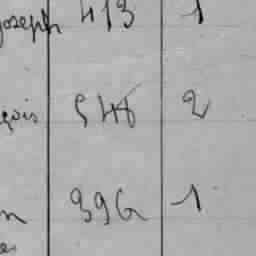 Joseph 413 1
çois 548 2
n 396 1